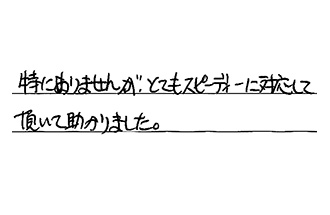 特にありませんが、とてもスピーディーに対応して
頂いて助かりました。